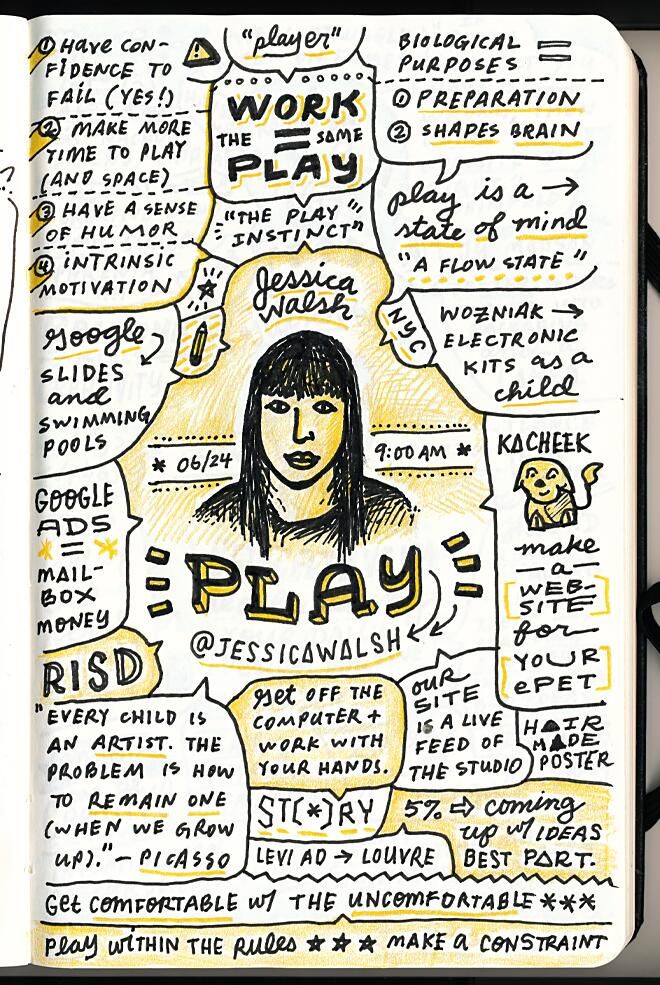 ① Have CON-
FIDENCE TO
FAIL (YES!)
② MAKE MORE
TIME TO PLAY
(AND SPACE)
③ HAVE A SENSE
OF HUMOR
④ INTRINSIC
MOTIVATION
"player"
WORK
THE = SAME
PLAY
"THE PLAY
INSTINCT"
BIOLOGICAL
PURPOSES =
① PREPARATION
② SHAPES BRAIN
play is a →
state of mind
"A FLOW STATE"
Jessica
Walsh
NYC
WOZNIAK →
ELECTRONIC
KITS as a
child
google
SLIDES
and
SWIMMING
POOLS
* 06/24
9:00 AM *
GOOGLE
ADS
* = *
MAIL-
BOX
MONEY
KACHEEK
make
— a —
[WEB-
SITE]
for —
[YOUR
ePET]
PLAY
@JESSICAWALSH
RISD
"EVERY CHILD IS
AN ARTIST. THE
PROBLEM IS HOW
TO REMAIN ONE
(WHEN WE GROW
UP)." – PICASSO
get OFF THE
COMPUTER +
WORK WITH
YOUR HANDS.
OUR
SITE
IS A LIVE
FEED OF
THE STUDIO
HAIR
MADE
POSTER
ST(*)RY
LEVI AD → LOUVRE
5% ⇨ coming
up w/ IDEAS
BEST PART.
Get COMFORTABLE w/ THE UNCOMFORTABLE ***
Play WITHIN THE RULES ★ ★ ★ MAKE A CONSTRAINT